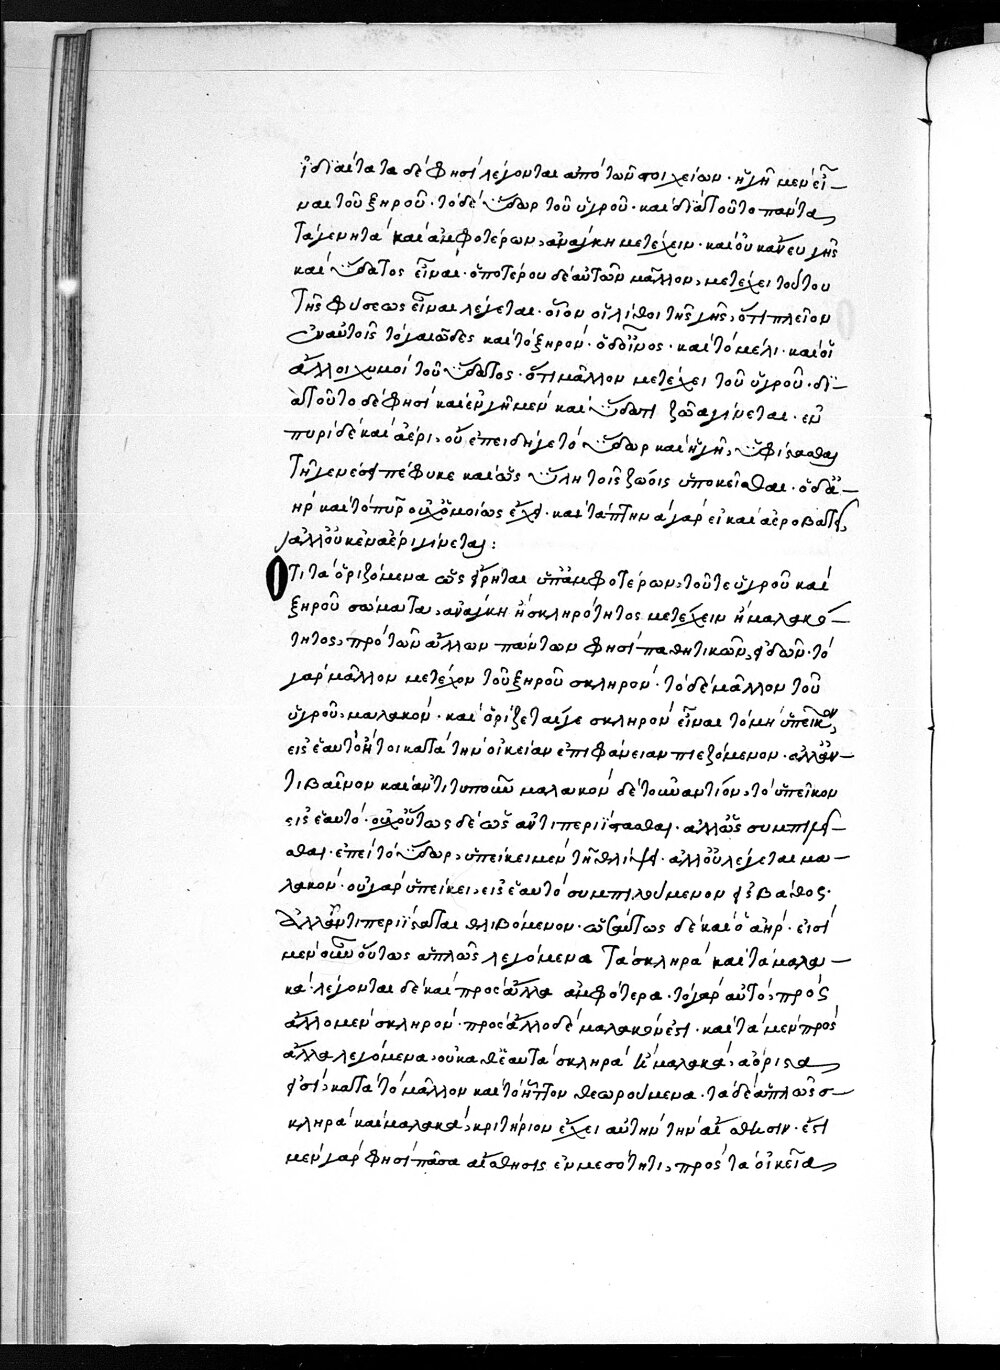 ἰδιαίτατα δέ φησι λέγονται ἀπὸ τῶν στοιχείων· ἡ γῆ μὲν εἶ-
ναι τοῦ ξηροῦ· τὸ δὲ ὕδωρ τοῦ ὑγροῦ· καὶ διὰ τοῦτο πάντα
τὰ γενητὰ καὶ ἀμφοτέρων, ἀνάγκη μετέχειν· καὶ οὐκ ἄνευ γῆς
καὶ ὕδατος εἶναι· ὁποτέρου δὲ αὐτῶν μᾶλλον, μετέχει τούτου
τῆς φύσεως εἶναι λέγεται· οἷον οἱ λίθοι τῆς γῆς, ὅτι πλεῖον
ἐν αὐτοῖς τὸ γαιῶδες καὶ τὸ ξηρόν· ὁ δ' οἶνος· καὶ τὸ μέλι· καὶ οἱ
ἄλλοι χυμοὶ τοῦ ὕδατος· ὅτι μᾶλλον μετέχει τοῦ ὑγροῦ· δι-
ὰ τοῦτο δέ φησι καὶ ἐν γῇ μὲν καὶ ὕδατι ζῶα γίνεται· ἐν
πυρὶ δὲ καὶ ἀέρι, οὔ ἐπειδήγε τὸ ὕδωρ καὶ ἡ γῆ, ὑφίστασθαι
τῇ γενέσει πέφυκε καὶ ὡς ὕλη τοῖς ζώοις ὑποκεῖσθαι· ὁ δὲ ἀ-
ὴρ καὶ τὸ πῦρ οὐχ ὁμοίως ἔχει· καὶ τὰ πτηνὰ γὰρ εἰ καὶ ἀεροβατεῖ,
ἀλλ' οὐκ ἐν ἀέρι γίνεται:
Ὅτι τὰ ὁριζόμενα ὡς εἴρηται ὑπ' ἀμφοτέρων, τοῦ τε ὑγροῦ καὶ
ξηροῦ σώματα, ἀνάγκη ἢ σκληρότητος μετέχειν ἢ μαλακό-
τητος, πρὸ τῶν ἄλλων πάντων φησὶ παθητικῶν εἰδῶν· τὸ
γὰρ μᾶλλον μετέχον τοῦ ξηροῦ σκληρόν· τὸ δὲ μᾶλλον τοῦ
ὑγροῦ, μαλακόν· καὶ ὁρίζεται γε σκληρὸν εἶναι τὸ μὴ ὑπεῖκον,
εἰς ἑαυτὸ ἤτοι κατὰ τὴν οἰκείαν ἐπιφάνειαν πιεζόμενον· ἀλλ' ἀν-
τιβαῖνον καὶ ἀντιτυποῦν μαλακὸν δὲ τοὐναντίον, τὸ ὑπεῖκον
εἰς ἑαυτό· οὐχ οὕτως δὲ ὡς ἀντιπεριΐστασθαι· ἀλλ' ὡς συμπιλεῖ-
σθαι· ἐπεὶ τὸ ὕδωρ, ὑπείκει μὲν τῇ θλίψει· ἀλλ' οὐ λέγεται μα-
λακόν· οὐ γὰρ ὑπείκει, εἰς ἑαυτὸ συμπιλούμενον εἰς βάθος·
ἀλλ' ἀντιπεριΐσταται θλιβόμενον· ὡσαύτως δὲ καὶ ὁ ἀήρ· εἰσὶ
μὲν οὖν οὕτως ἁπλῶς λεγόμενα τὰ σκληρὰ καὶ τὰ μαλα-
κά· λέγονται δὲ καὶ πρὸς ἄλλα ἀμφότερα· τὸ γὰρ αὐτὸ, πρὸς
ἄλλο μὲν σκληρόν· πρὸς ἄλλο δὲ μαλακόν ἐστι· καὶ τὰ μὲν πρὸς
ἄλλα λεγόμενα, οὐ καθ' ἑαυτὰ σκληρὰ καὶ μαλακά, ἀόριστα
εἰσί, κατὰ τὸ μᾶλλον καὶ τὸ ἧττον θεωρούμενα· τὰ δὲ ἁπλῶς σ-
κληρὰ καὶ μαλακά, κριτήριον ἔχει αὐτὴν τὴν αἴσθησιν· ἔστι
μὲν γάρ φησι πᾶσα αἴσθησις ἐν μεσότητι, πρὸς τὰ οἰκεῖα